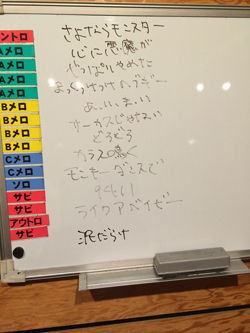 さよならモンスター
心に悪魔が
やっぱりやめた
まっくろけっけのブギー
あ、い、ま、い
サーカスじゃない
どろどろ
カラスの鳴く
モンキーダンスで
9461
ライクアベイビー
泥だらけ
ントロ
Aメロ
Aメロ
Aメロ
Aメロ
Bメロ
Bメロ
Bメロ
Bメロ
Cメロ
Cメロ
ソロ
サビ
サビ
アウトロ
サビ